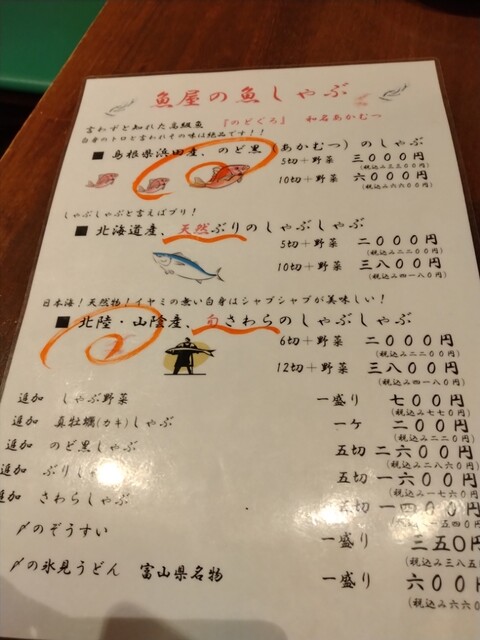 魚屋の魚しゃぶ
言わずと知れた高級魚 『のどぐろ』 和名あかむつ
白身のトロと言われその味は絶品です！！
■ 島根県浜田産、のど黒(あかむつ)のしゃぶ
5切＋野菜 三〇〇〇円
(税込み三三〇〇円)
10切＋野菜 六〇〇〇円
(税込み六六〇〇円)
しゃぶしゃぶと言えばブリ！
■ 北海道産、天然ぶりのしゃぶしゃぶ
5切＋野菜 二〇〇〇円
(税込み二二〇〇円)
10切＋野菜 三八〇〇円
(税込み四一八〇円)
日本海！天然物！イヤミの無い白身はシャブシャブが美味しい！
■ 北陸・山陰産、旬さわらのしゃぶしゃぶ
6切＋野菜 二〇〇〇円
(税込み二二〇〇円)
12切＋野菜 三八〇〇円
(税込み四一八〇円)
追加 しゃぶ野菜 一盛り 七〇〇円
(税込み七七〇円)
追加 真牡蠣(カキ)しゃぶ 一ケ 二〇〇円
(税込み二二〇円)
追加 のど黒しゃぶ 五切 二六〇〇円
(税込み二八六〇円)
追加 ぶりしゃぶ 五切 一六〇〇円
(税込み一七六〇円)
追加 さわらしゃぶ 五切 一四〇〇円
五四〇円)
〆のぞうすい 一盛り 三五〇円
(税込み三八五円
〆の氷見うどん 富山県名物 一盛り 六〇〇円
(税込み六六〇